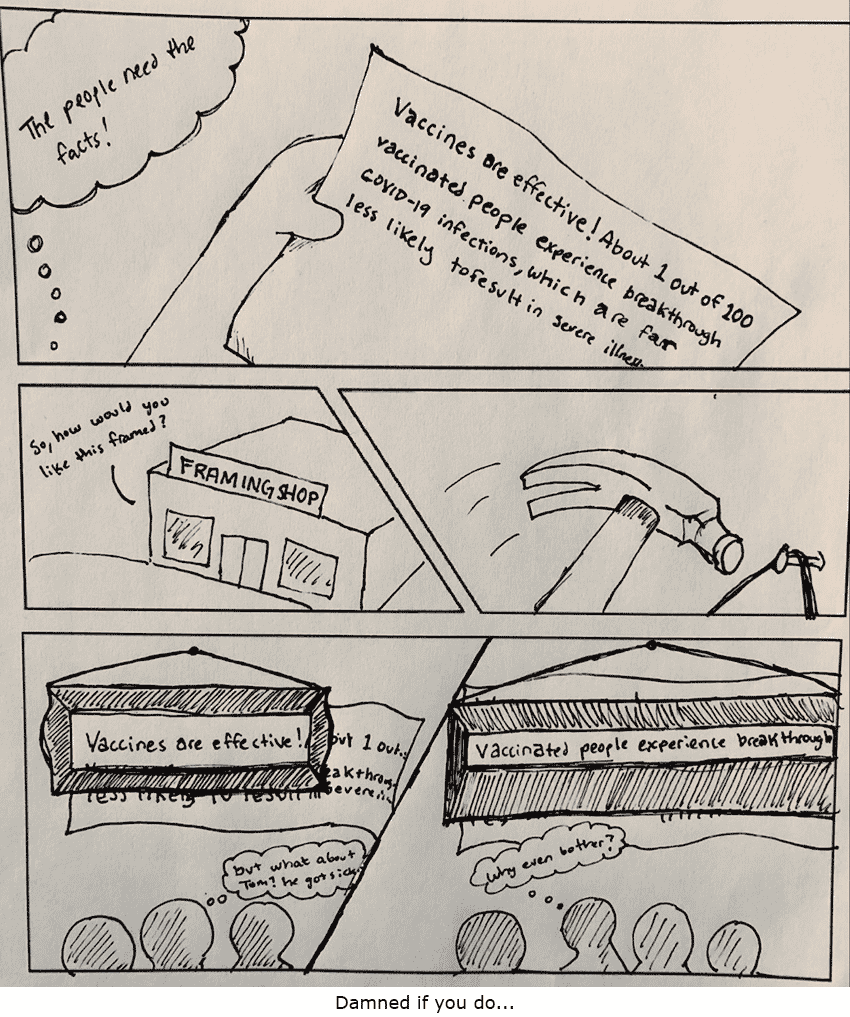 The people need the
facts!
Vaccines are effective! About 1 out of 100
vaccinated people experience breakthrough
COVID-19 infections, which are far
less likely to result in severe illness.
So, how would you
like this framed?
FRAMING SHOP
Vaccines are effective!
out 1 out
eakthroug
less likely to result in severe
but what about
Tom? he got sick.
Vaccinated people experience breakthrough
why even bother?
Damned if you do...